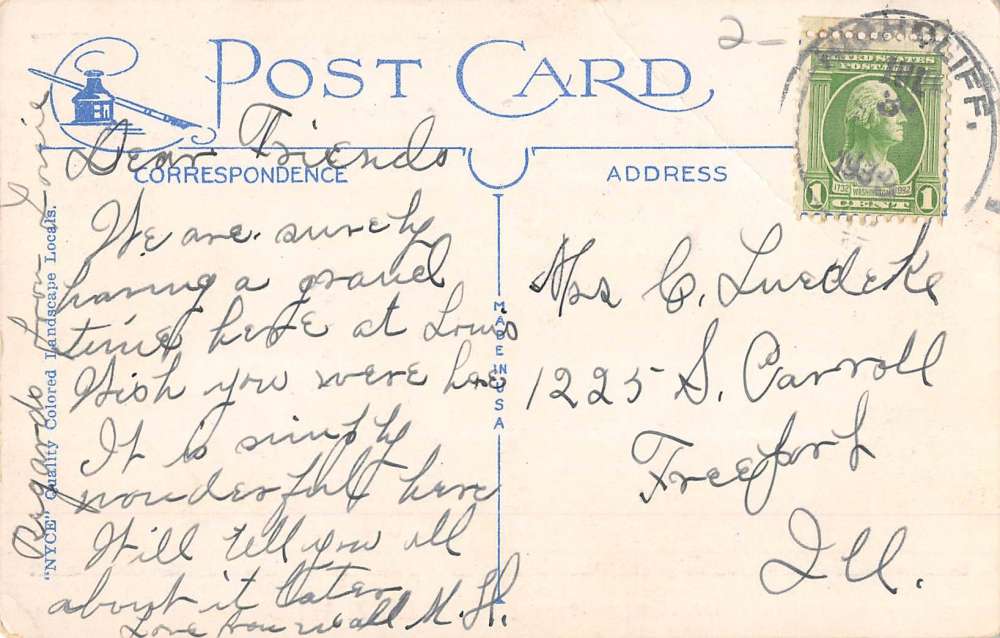 POST CARD
CORRESPONDENCE
ADDRESS
Dear Friends
We are surely
having a grand
time here at Lows
Wish you were here
It is simply
wonderful here
Will tell you all
about it later
Love you all M. H.
Regards from Lorie
"NYCE" Quality Colored Landscape Locals.
MADE IN USA
2-
CLIFF.
JUL
3
193
UNITED STATES
POSTAGE
1732 WASHINGTON 1932
1 CENT 1
Mrs C. Luedeke
1225 S. Carroll
Freeport
Ill.